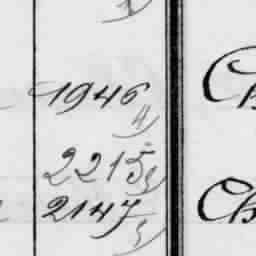 1946
4)
2215
3)
2147
3)
Ch
Ch